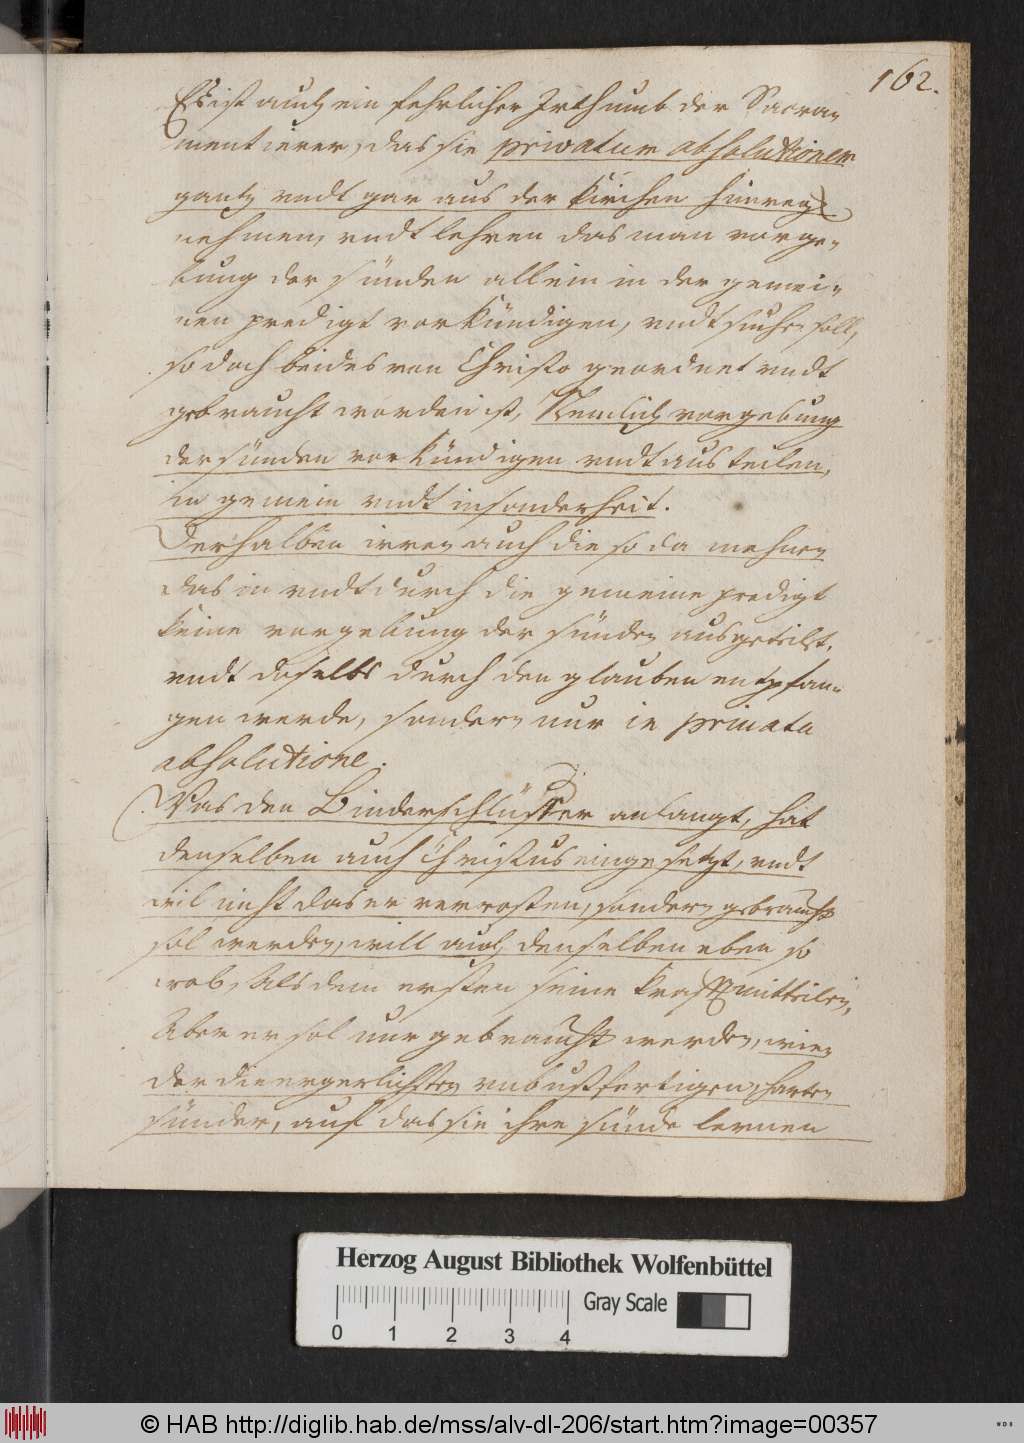 162.
Es ist auch ein fehrlicher Irthumb der Sacra-
mentierer, das sie privatam absolutionem
gantz undt gar aus der Kirchen hinweg
nehmen, undt lehren das man vorge-
bung der sünden allein in der gemei-
nen predigt vorkündigen, undt suchen soll,
so doch beides von Christo geordnet undt
gebraucht worden ist, Nemlich vorgebung
der sünden vorkündigen undt austeilen,
in gemein undt in sonderheit.
Derhalben irren auch die so da mehnen
das in undt durch die gemeine predigt
keine vorgebung der sünden ausgeteilt,
undt daselbs durch den glauben entpfan-
gen werde, sondern nur in privata
absolutione.
Was den Binderschlüssel anlangt, hat
denselben auch Christus eingesetzt, undt
wil nicht das er verrosten, sondern gebraucht
sol werden, will auch denselben eben so
wol, Als dem ersten seine krafft mitteilen,
Aber er sol nur gebraucht werden, wie-
der die ergerlichsten unbußfertigen, harten
sünder, auf das sie ihre sünde lernen
Herzog August Bibliothek Wolfenbüttel
0 1 2 3 4 Gray Scale
© HAB http://diglib.hab.de/mss/alv-dl-206/start.htm?image=00357